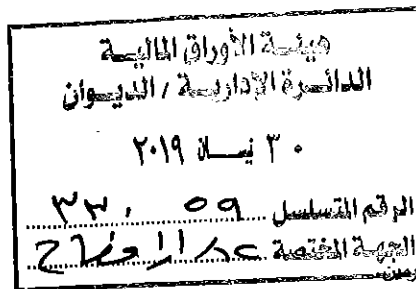 هيئة الأوراق المالية
الدائرة الإدارية / الديوان
٣٠ نيسان ٢٠١٩
الرقم المتسلسل ٥٩ ٣٣٠
الجهة المختصة الإفصاح